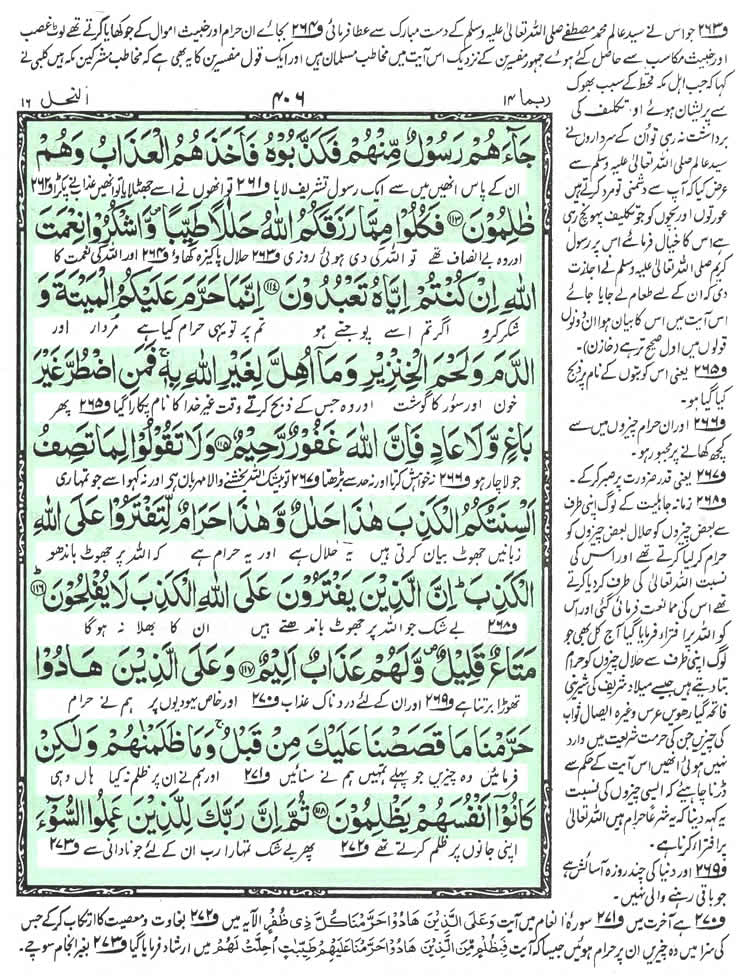 ف۲۶۳ جو اس نے سید عالم محمد مصطفےٰ صلی اللہ تعالیٰ علیہ وسلم کے دست مبارک سے عطا فرمائی ف۲۶۴ بجائے ان حرام اور خبیث اموال کے جو کھایا کرتے تھے لوٹ غصب
اور خبیث مکاسب سے حاصل کئے ہوئے جمہور مفسرین کے نزدیک اس آیت میں مخاطب مسلمان ہیں اور ایک قول مفسرین کا یہ بھی ہے کہ مخاطب مشرکین مکہ ہیں کلبی نے
ربما ۱۴
۴۰۶
النحل ۱۶
جَآءَهُمْ رَسُوْلٌ مِّنْهُمْ فَكَذَّبُوْهُ فَاَخَذَهُمُ الْعَذَابُ وَهُمْ
ان کے پاس انھیں میں سے ایک رسول تشریف لایا ف۲۶۱ تو انھوں نے اسے جھٹلایا تو انھیں عذاب نے پکڑا ف۲۶۲
ظٰلِمُوْنَ ۱۱۳ فَكُلُوْا مِمَّا رَزَقَكُمُ اللّٰهُ حَلٰلًا طَيِّبًا وَّاشْكُرُوْا نِعْمَتَ
اور وہ بے انصاف تھے تو اللہ کی دی ہوئی روزی ف۲۶۳ حلال پاکیزہ کھاؤ ف۲۶۴ اور اللہ کی نعمت کا
اللّٰهِ اِنْ كُنْتُمْ اِيَّاهُ تَعْبُدُوْنَ ۱۱۴ اِنَّمَا حَرَّمَ عَلَيْكُمُ الْمَيْتَةَ وَ
شکر کرو اگر تم اسے پوجتے ہو تم پر تو یہی حرام کیا ہے مُردار اور
الدَّمَ وَلَحْمَ الْخِنْزِيْرِ وَمَآ اُهِلَّ لِغَيْرِ اللّٰهِ بِهٖ ۚ فَمَنِ اضْطُرَّ غَيْرَ
خون اور سوٗر کا گوشت اور وہ جس کے ذبح کرتے وقت غیر خدا کا نام پکارا گیا ف۲۶۵ پھر
بَاغٍ وَّلَا عَادٍ فَاِنَّ اللّٰهَ غَفُوْرٌ رَّحِيْمٌ ۱۱۵ وَلَا تَقُوْلُوْا لِمَا تَصِفُ
جو لاچار ہو ف۲۶۶ نہ خواہش کرتا اور نہ حد سے بڑھتا ف۲۶۷ تو بیشک اللہ بخشنے والا مہربان ہے اور نہ کہو اسے جو تمہاری
اَلْسِنَتُكُمُ الْكَذِبَ هٰذَا حَلٰلٌ وَّهٰذَا حَرَامٌ لِّتَفْتَرُوْا عَلَى اللّٰهِ
زبانیں جھوٹ بیان کرتی ہیں یہ حلال ہے اور یہ حرام ہے کہ اللہ پر جھوٹ باندھو
الْكَذِبَ ؕ اِنَّ الَّذِيْنَ يَفْتَرُوْنَ عَلَى اللّٰهِ الْكَذِبَ لَا يُفْلِحُوْنَ ۱۱۶
ف۲۶۸ بے شک جو اللہ پر جھوٹ باندھتے ہیں ان کا بھلا نہ ہو گا
مَتَاعٌ قَلِيْلٌ ۪ وَّلَهُمْ عَذَابٌ اَلِيْمٌ ۱۱۷ وَعَلَى الَّذِيْنَ هَادُوْا
تھوڑا برتنا ہے ف۲۶۹ اور ان کے لئے دردناک عذاب ف۲۷۰ اور خاص یہودیوں پر ہم نے حرام
حَرَّمْنَا مَا قَصَصْنَا عَلَيْكَ مِنْ قَبْلُ ۚ وَمَا ظَلَمْنٰهُمْ وَلٰكِنْ
فرمائیں وہ چیزیں جو پہلے تمہیں ہم نے سنائیں ف۲۷۱ اور ہم نے ان پر ظلم نہ کیا ہاں وہی
كَانُوْٓا اَنْفُسَهُمْ يَظْلِمُوْنَ ۱۱۸ ثُمَّ اِنَّ رَبَّكَ لِلَّذِيْنَ عَمِلُوا السُّوْٓءَ
اپنی جانوں پر ظلم کرتے تھے ف۲۷۲ پھر بے شک تمہارا رب ان کے لئے جو نادانی سے ف۲۷۳
کہا کہ جب اہل مکہ قحط کے سبب بھوک
سے پریشان ہوئے اور تکلیف کی
برداشت نہ رہی تو ان کے سرداروں نے
سید عالم صلی اللہ تعالیٰ علیہ وسلم سے
عرض کیا کہ آپ سے دشمنی تو مرد کرتے ہیں
عورتوں اور بچوں کو جو تکلیف پہونچ رہی
ہے اس کا خیال فرمائیے اس پر رسول
کریم صلی اللہ تعالیٰ علیہ وسلم نے اجازت
دی کہ ان کے لئے طعام لے جایا جائے
اس آیت میں اس کا بیان ہوا ان دونوں
قولوں میں اول صحیح تر ہے (خازن)
ف۲۶۵ یعنی اس کو بتوں کے نام پر ذبح
کیا گیا ہو۔
ف۲۶۶ اور ان حرام چیزوں میں سے
کچھ کھانے پر مجبور ہو۔
ف۲۶۷ یعنی قدر ضرورت پر صبر کر کے۔
ف۲۶۸ زمانہ جاہلیت کے لوگ اپنی طرف
سے بعض چیزوں کو حلال بعض چیزوں کو
حرام کر لیا کرتے تھے اور اس کی
نسبت اللہ تعالیٰ کی طرف کر دیا کرتے
تھے اس کی ممانعت فرمائی گئی اور اس
کو اللہ پر افتراء فرمایا گیا آج کل بھی جو
لوگ اپنی طرف سے حلال چیزوں کو حرام
بتا دیتے ہیں جیسے میلاد شریف کی شیرینی
فاتحہ گیارھویں عرس وغیرہ ایصال ثواب
کی چیزیں جن کی حرمت شریعت میں وارد
نہیں ہوئی انھیں اس آیت کے حکم سے
ڈرنا چاہیئے کہ ایسی چیزوں کی نسبت
یہ کہہ دینا کہ یہ شرعا حرام ہیں اللہ تعالیٰ
پر افترا کرنا ہے۔
ف۲۶۹ اور دنیا کی چند روزہ آسائش ہے
جو باقی رہنے والی نہیں۔
ف۲۷۰ ہے آخرت میں ف۲۷۱ سورۂ انعام میں آیت وَعَلَى الَّذِيْنَ هَادُوْا حَرَّمْنَا كُلَّ ذِيْ ظُفُرٍ الآیہ میں ف۲۷۲ بغاوت و معصیت کا ارتکاب کر کے جس
کی سزا میں وہ چیزیں ان پر حرام ہوئیں جیسا کہ آیت فَبِظُلْمٍ مِّنَ الَّذِيْنَ هَادُوْا حَرَّمْنَا عَلَيْهِمْ طَيِّبٰتٍ اُحِلَّتْ لَهُمْ میں ارشاد فرمایا گیا ف۲۷۳ بغیر انجام سوچے۔